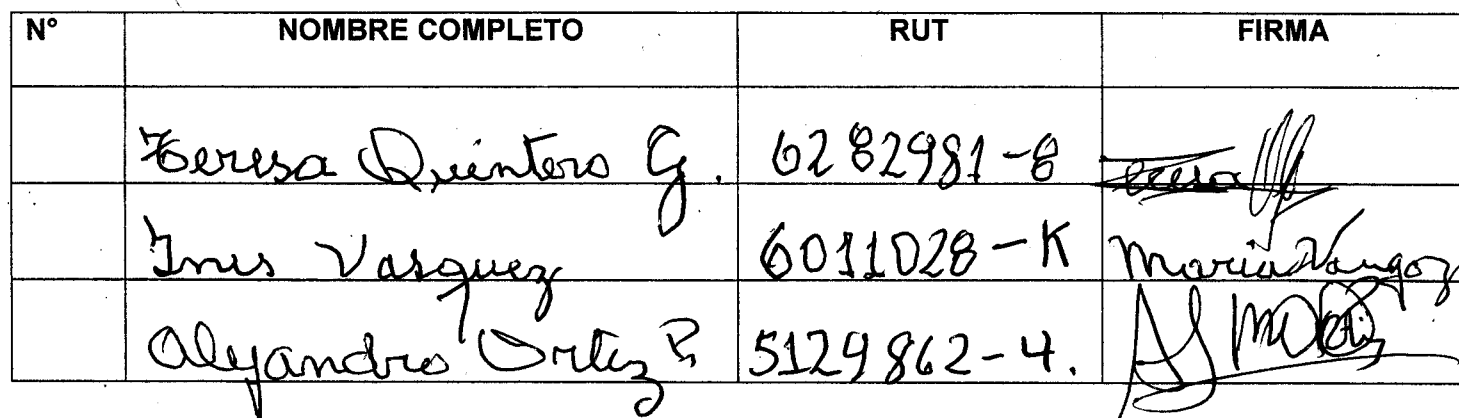 N° NOMBRE COMPLETO RUT FIRMA
Teresa Quintero G. 6282981-8 Teresa
Ines Vasquez 6011028-K Maria
Alejandro Ortiz P. 5129862-4.